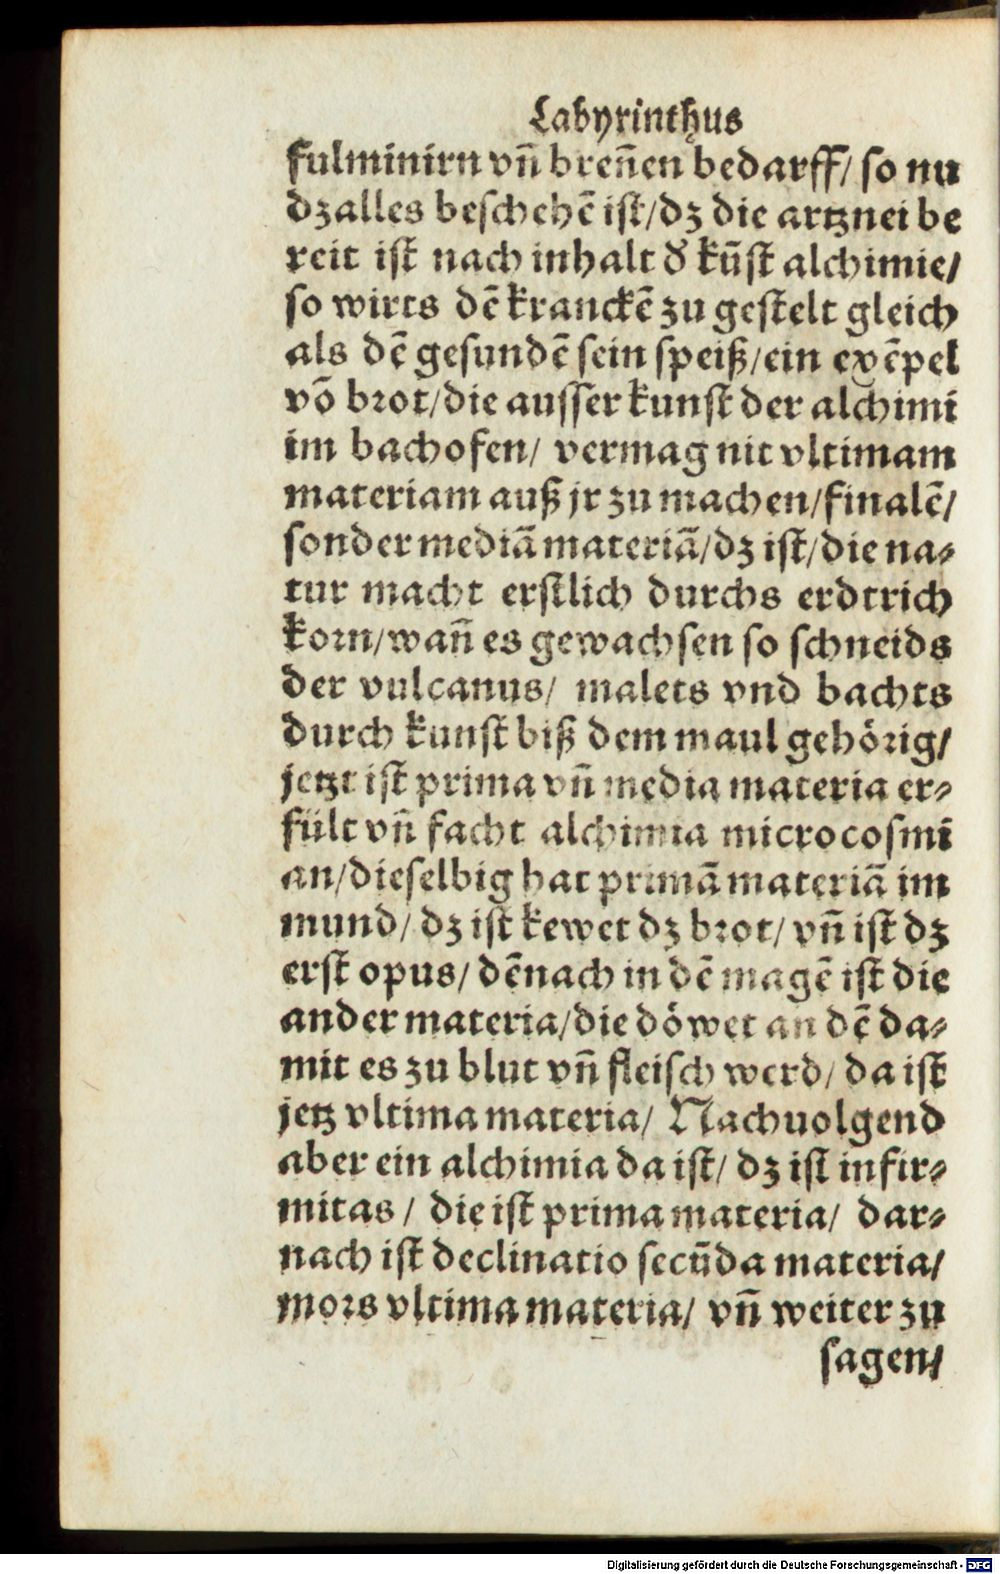 Labyrinthus
fulminirn vn̄ breñen bedarff/ so nu
dz alles beschehē ist/dz die artznei be
reit ist nach inhalt d̕ kūst alchimie/
so wirts dē kranckē zu gestelt gleich
als dē gesundē sein speiß/ein exēpel
võ brot/die ausser kunst der alchimi
im bachofen/ vermag nit vltimam
materiam auß jr zu machen/finalē/
sonder mediā materiā/dz ist/die na⸗
tur macht erstlich durchs erdtrich
korn/wañ es gewachsen so schneids
der vulcanus/ malets vnd bachts
durch kunst biß dem maul gehörig/
jetzt ist prima vn̄ media materia er⸗
fült vn̄ facht alchimia microcosmi
an/dieselbig hat primā materiā im
mund/ dz ist kewet dz brot/ vn̄ ist dz
erst opus/ dēnach in dē magē ist die
ander materia/die döwet an dē da⸗
mit es zu blut vn̄ fleisch werd/ da ist
jetz vltima materia/ Nachuolgend
aber ein alchimia da ist/ dz ist infir⸗
mitas/ die ist prima materia/ dar⸗
nach ist declinatio secūda materia/
mors vltima materia/ vn̄ weiter zu
sagen/
Digitalisierung gefördert durch die Deutsche Forschungsgemeinschaft - DFG